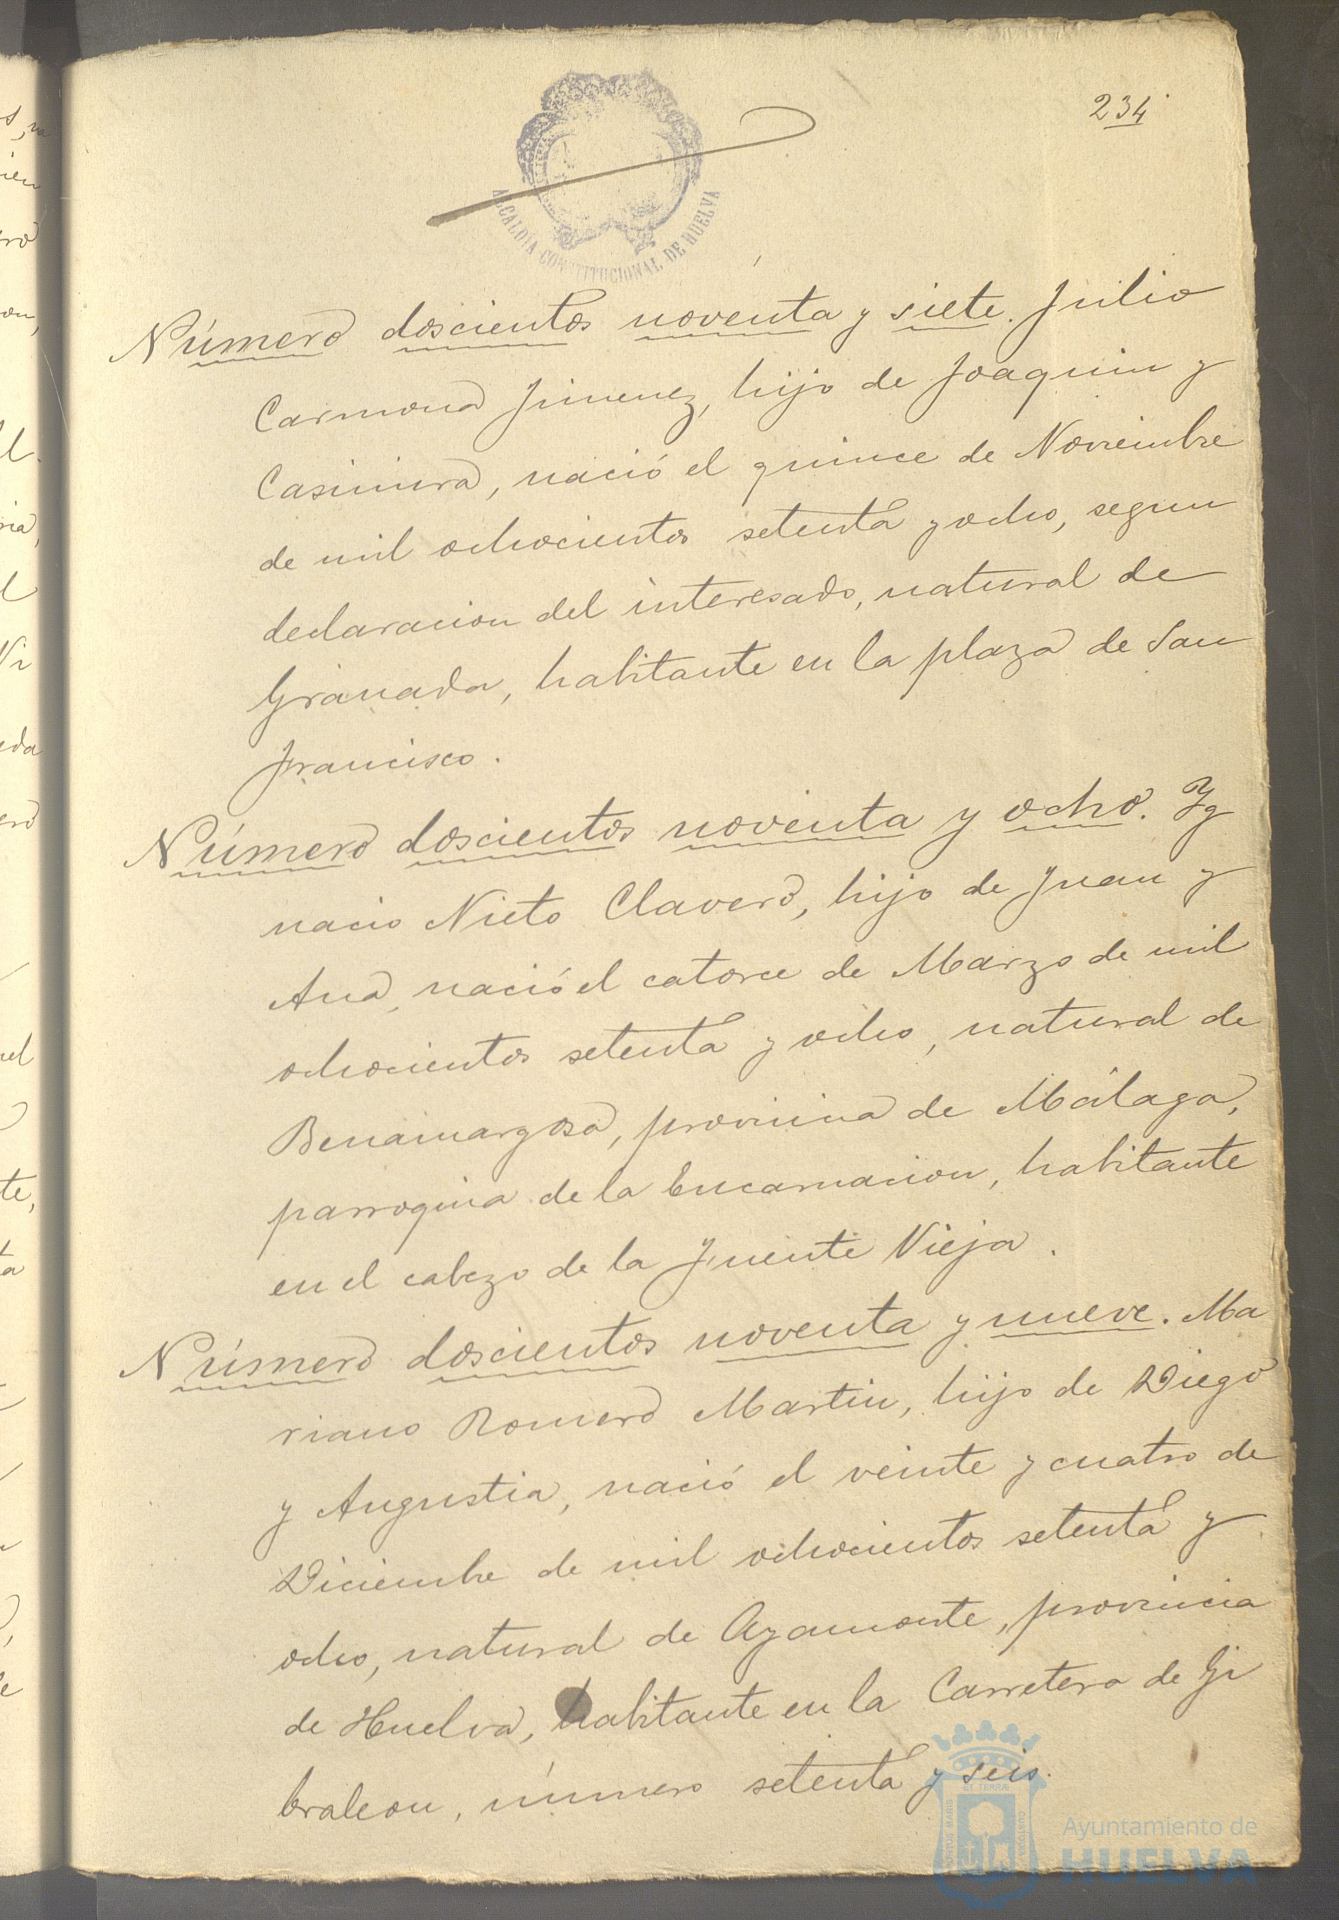 234
ALCALDÍA CONSTITUCIONAL DE HUELVA
Número doscientos noventa y siete. Julio
Carmona Jimenez, hijo de Joaquin y
Casimira, nació el quince de Noviembre
de mil ochocientos setenta y ocho, segun
declaracion del interesado, natural de
Granada, habitante en la plaza de San
Francisco.
Número doscientos noventa y ocho. Yg
nacio Nieto Clavero, hijo de Juan y
Ana, nació el catorce de Marzo de mil
ochocientos setenta y ocho, natural de
Benamargosa, provincia de Málaga,
parroquia de la Encarnacion, habitante
en el cabezo de la Fuente Vieja.
Número doscientos noventa y nueve. Ma
riano Romero Martin, hijo de Diego
y Angustia, nació el veinte y cuatro de
Diciembre de mil ochocientos setenta y
ocho, natural de Ayamonte, provincia
de Huelva, habitante en la Carretera de Gi
braleon, número setenta y seis.
Ayuntamiento de
HUELVA